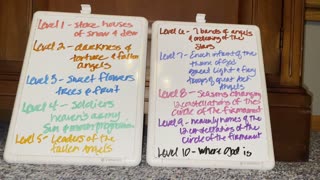 Level 1 - store houses
of snow & dew
Level 2 - darkness &
torture & fallen
angels
Level 3 - sweet flowers
trees & fruit
Level 4 - soldiers
heaven's army
Sun & moon progressions
Level 5 - Leaders of the
fallen Angels
Level 6 - 7 bands of angels
& ordaining of the
stars
Level 7 - Enoch infront of the
throne of God
Light & fiery
troops & great arch
Angels
Level 8 - Seasons changing
12 constellations of the
circle of the firmament
Level 9 - heavenly homes of the
12 constellations of the
circle of the firmament
Level 10 - Where God is